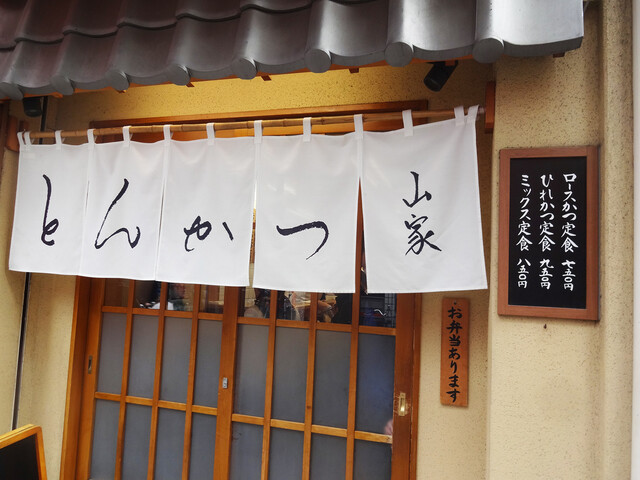 とんかつ
山家
ロースかつ定食 七五〇円
ひれかつ定食 九五〇円
ミックス定食 八五〇円
お弁当あります